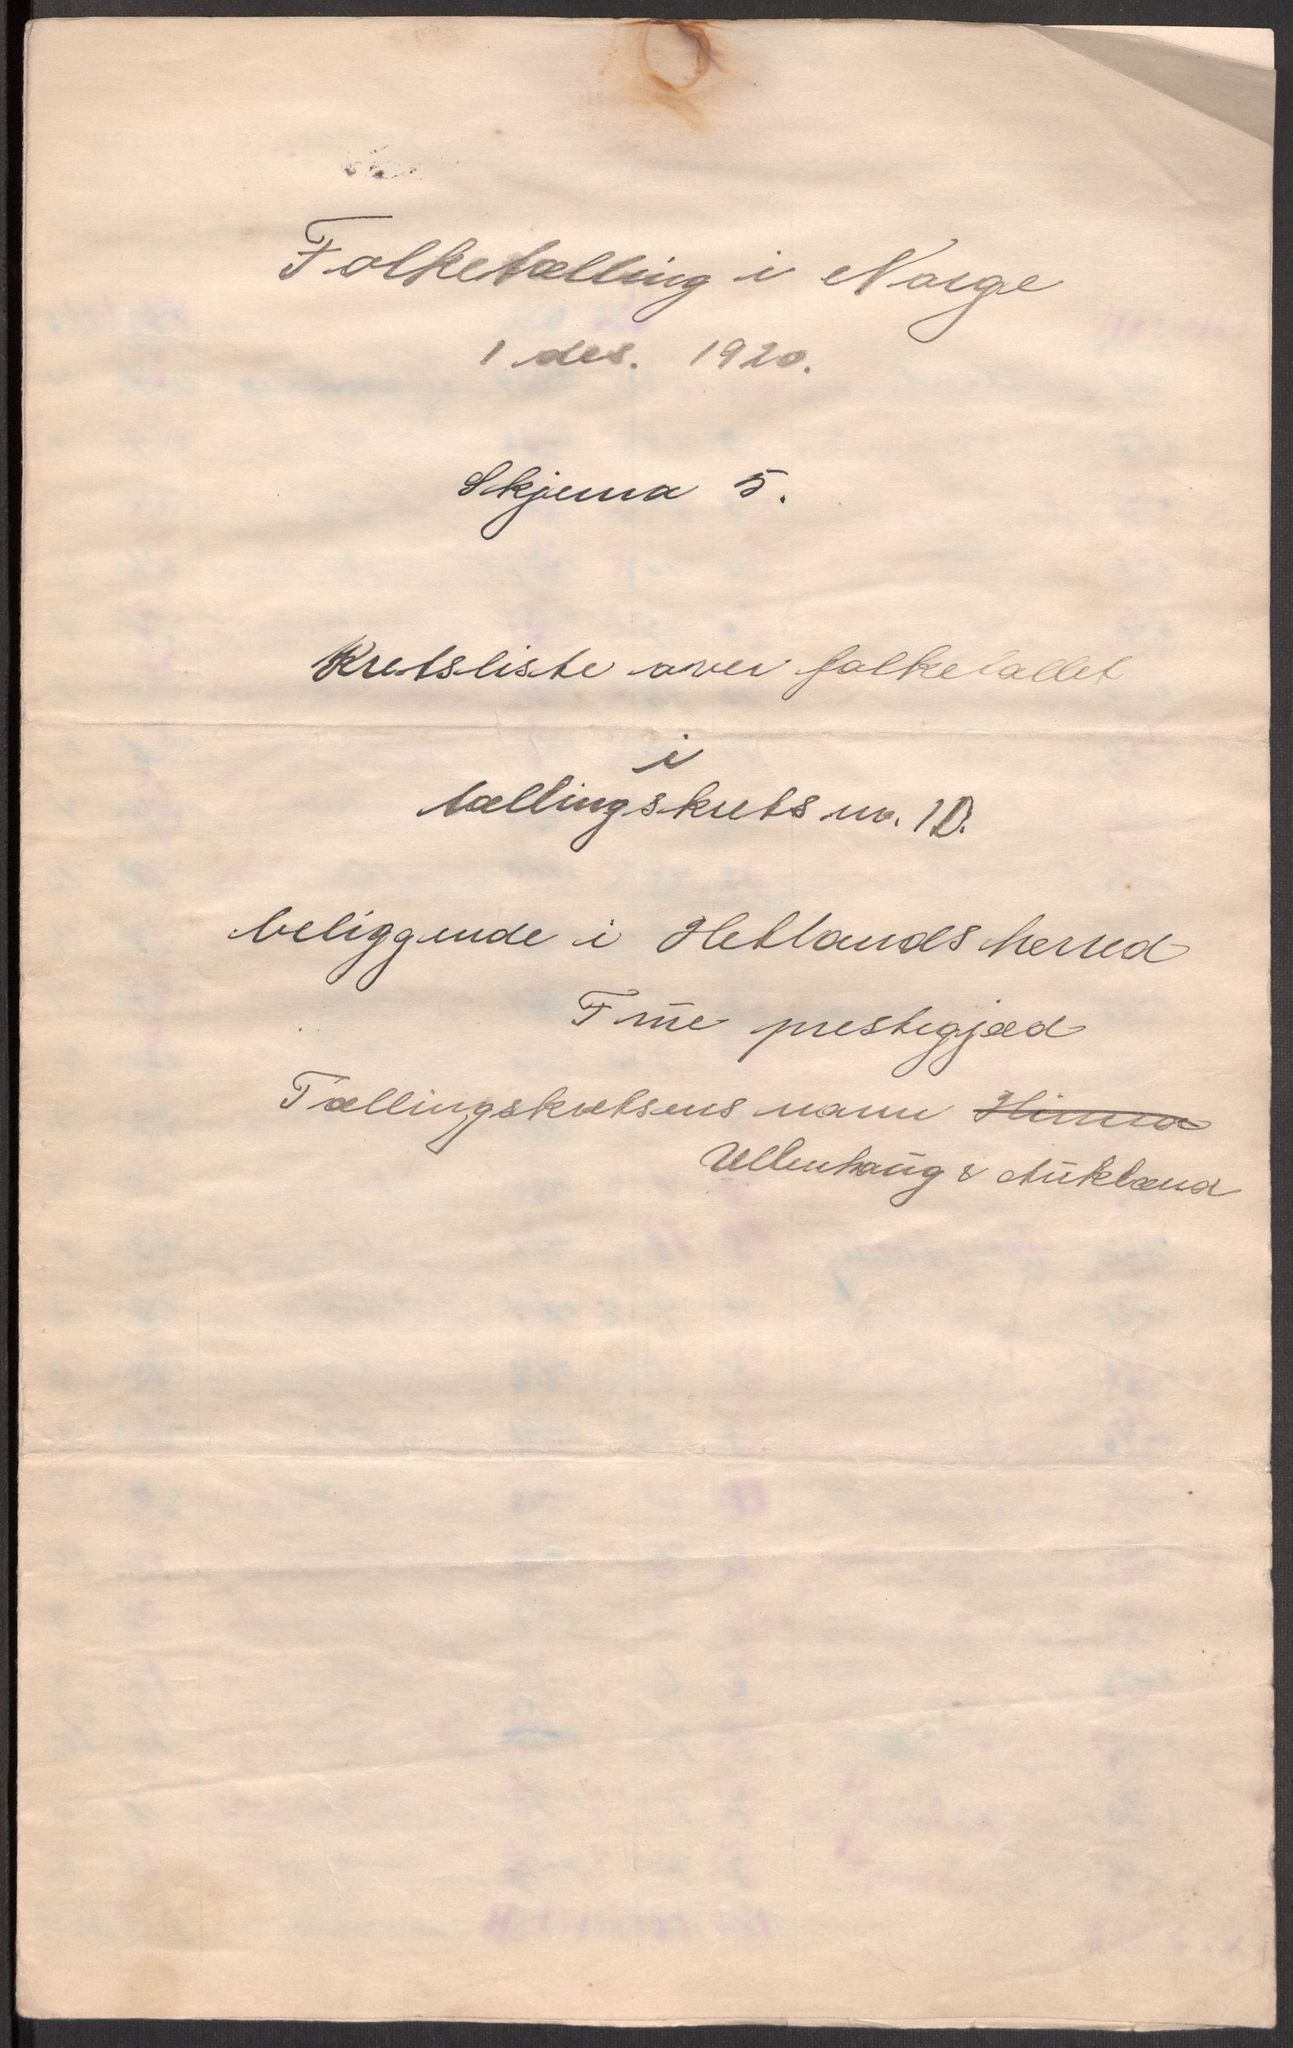 Folketælling i Norge
1 des. 1920.
Skjema 5.
Kretsliste over folketallet
i
tællingskrets nr. 10.
beliggende i Hetlands herred
Frue prestegjæd
Tællingskretsens navn Hinna
Ullenhaug & Aukland